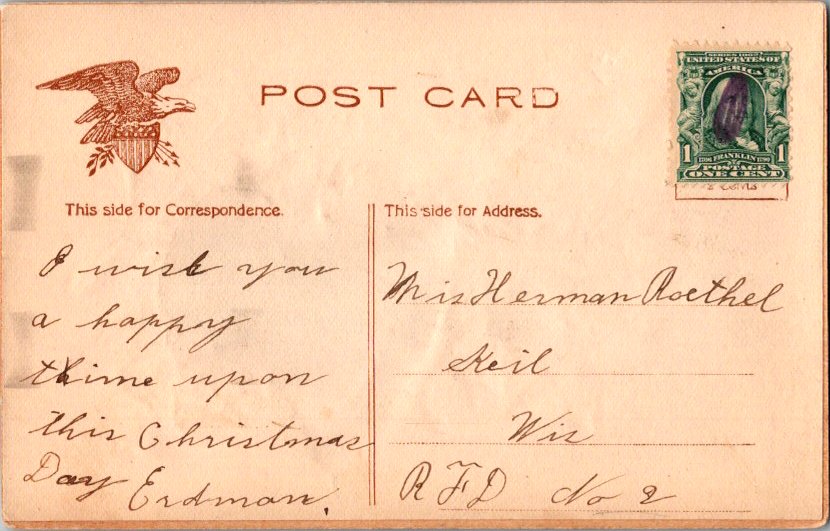 POST CARD
SERIES 1902
UNITED STATES OF
AMERICA
1 1706 FRANKLIN 1790 1
POSTAGE
ONE CENT
This side for Correspondence.
This side for Address.
I wish you
a happy
thime upon
this Christmas
Day Erdman.
Mis Herman Roethel
Keil
Wis
RFD No 2